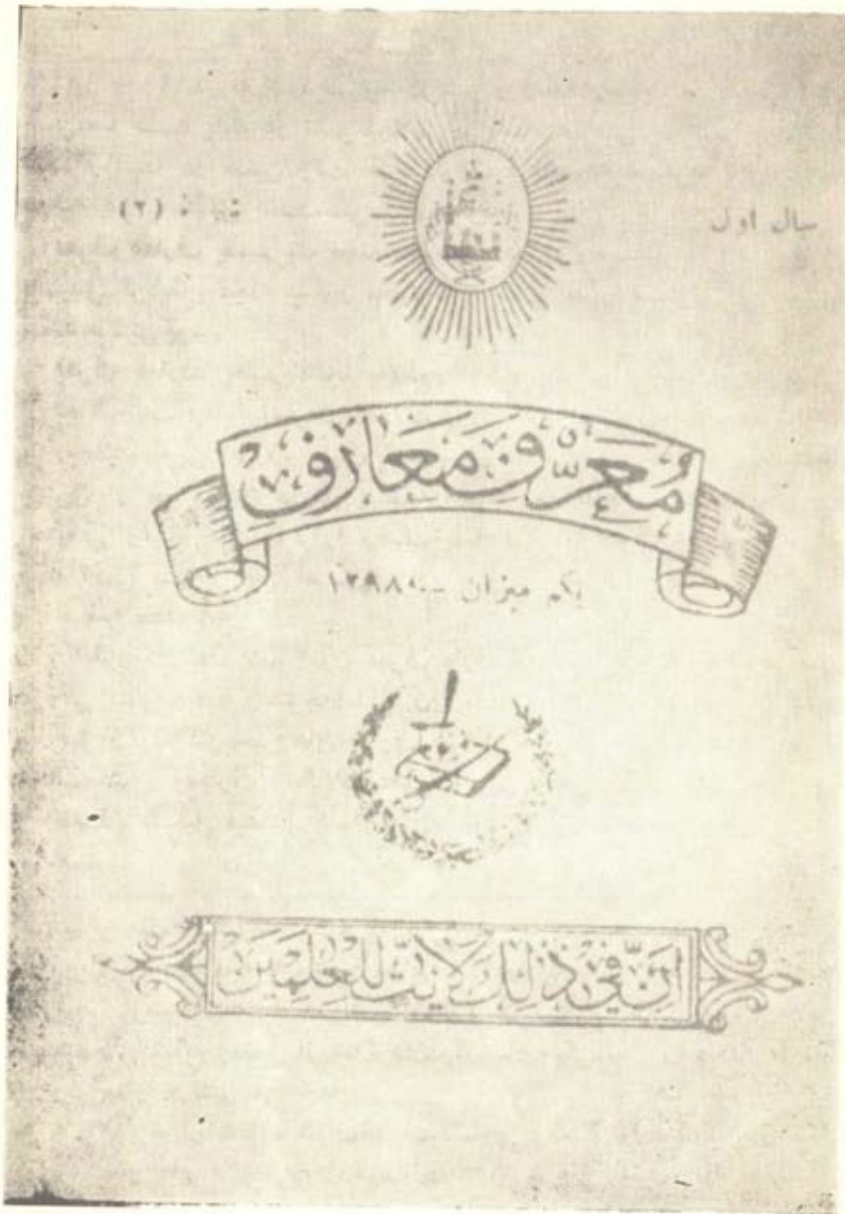 سال اول
(۲)
مُعَرِّفِ مَعَارِفْ
یکم میزان - ۱۲۹۸
اِنَّ فِی ذٰلِكَ لَاٰیٰتٍ لِلْعٰلِمِینَ